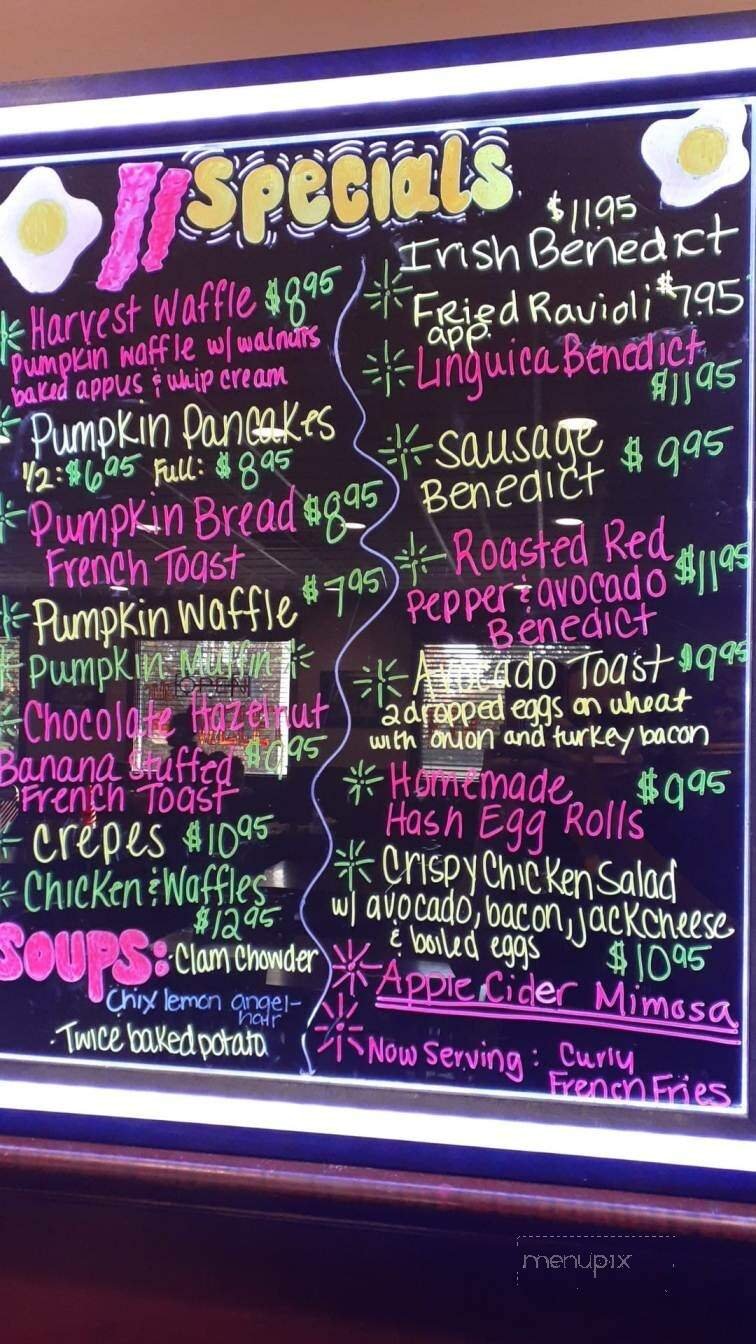 Specials
Harvest Waffle $8.95
Pumpkin waffle w/ walnuts
baked apples & whip cream
Pumpkin Pancakes
1/2: $6.95 Full: $8.95
Pumpkin Bread $8.95
French Toast
Pumpkin Waffle $7.95
Pumpkin Muffin
Chocolate Hazelnut
Banana Stuffed $9.95
French Toast
Crepes $10.95
Chicken & Waffles
$12.95
Soups: Clam Chowder
Chix lemon angel-
hair
Twice baked potato
$11.95
Irish Benedict
Fried Ravioli $7.95
app.
Linguica Benedict
$11.95
Sausage $9.95
Benedict
Roasted Red
Pepper & avocado $11.95
Benedict
Avocado Toast $9.95
2 dropped eggs on wheat
with onion and turkey bacon
Homemade $9.95
Hash Egg Rolls
Crispy Chicken Salad
w/ avocado, bacon, jack cheese
& boiled eggs $10.95
Apple Cider Mimosa
Now Serving: Curly
French Fries
OPEN
menupix